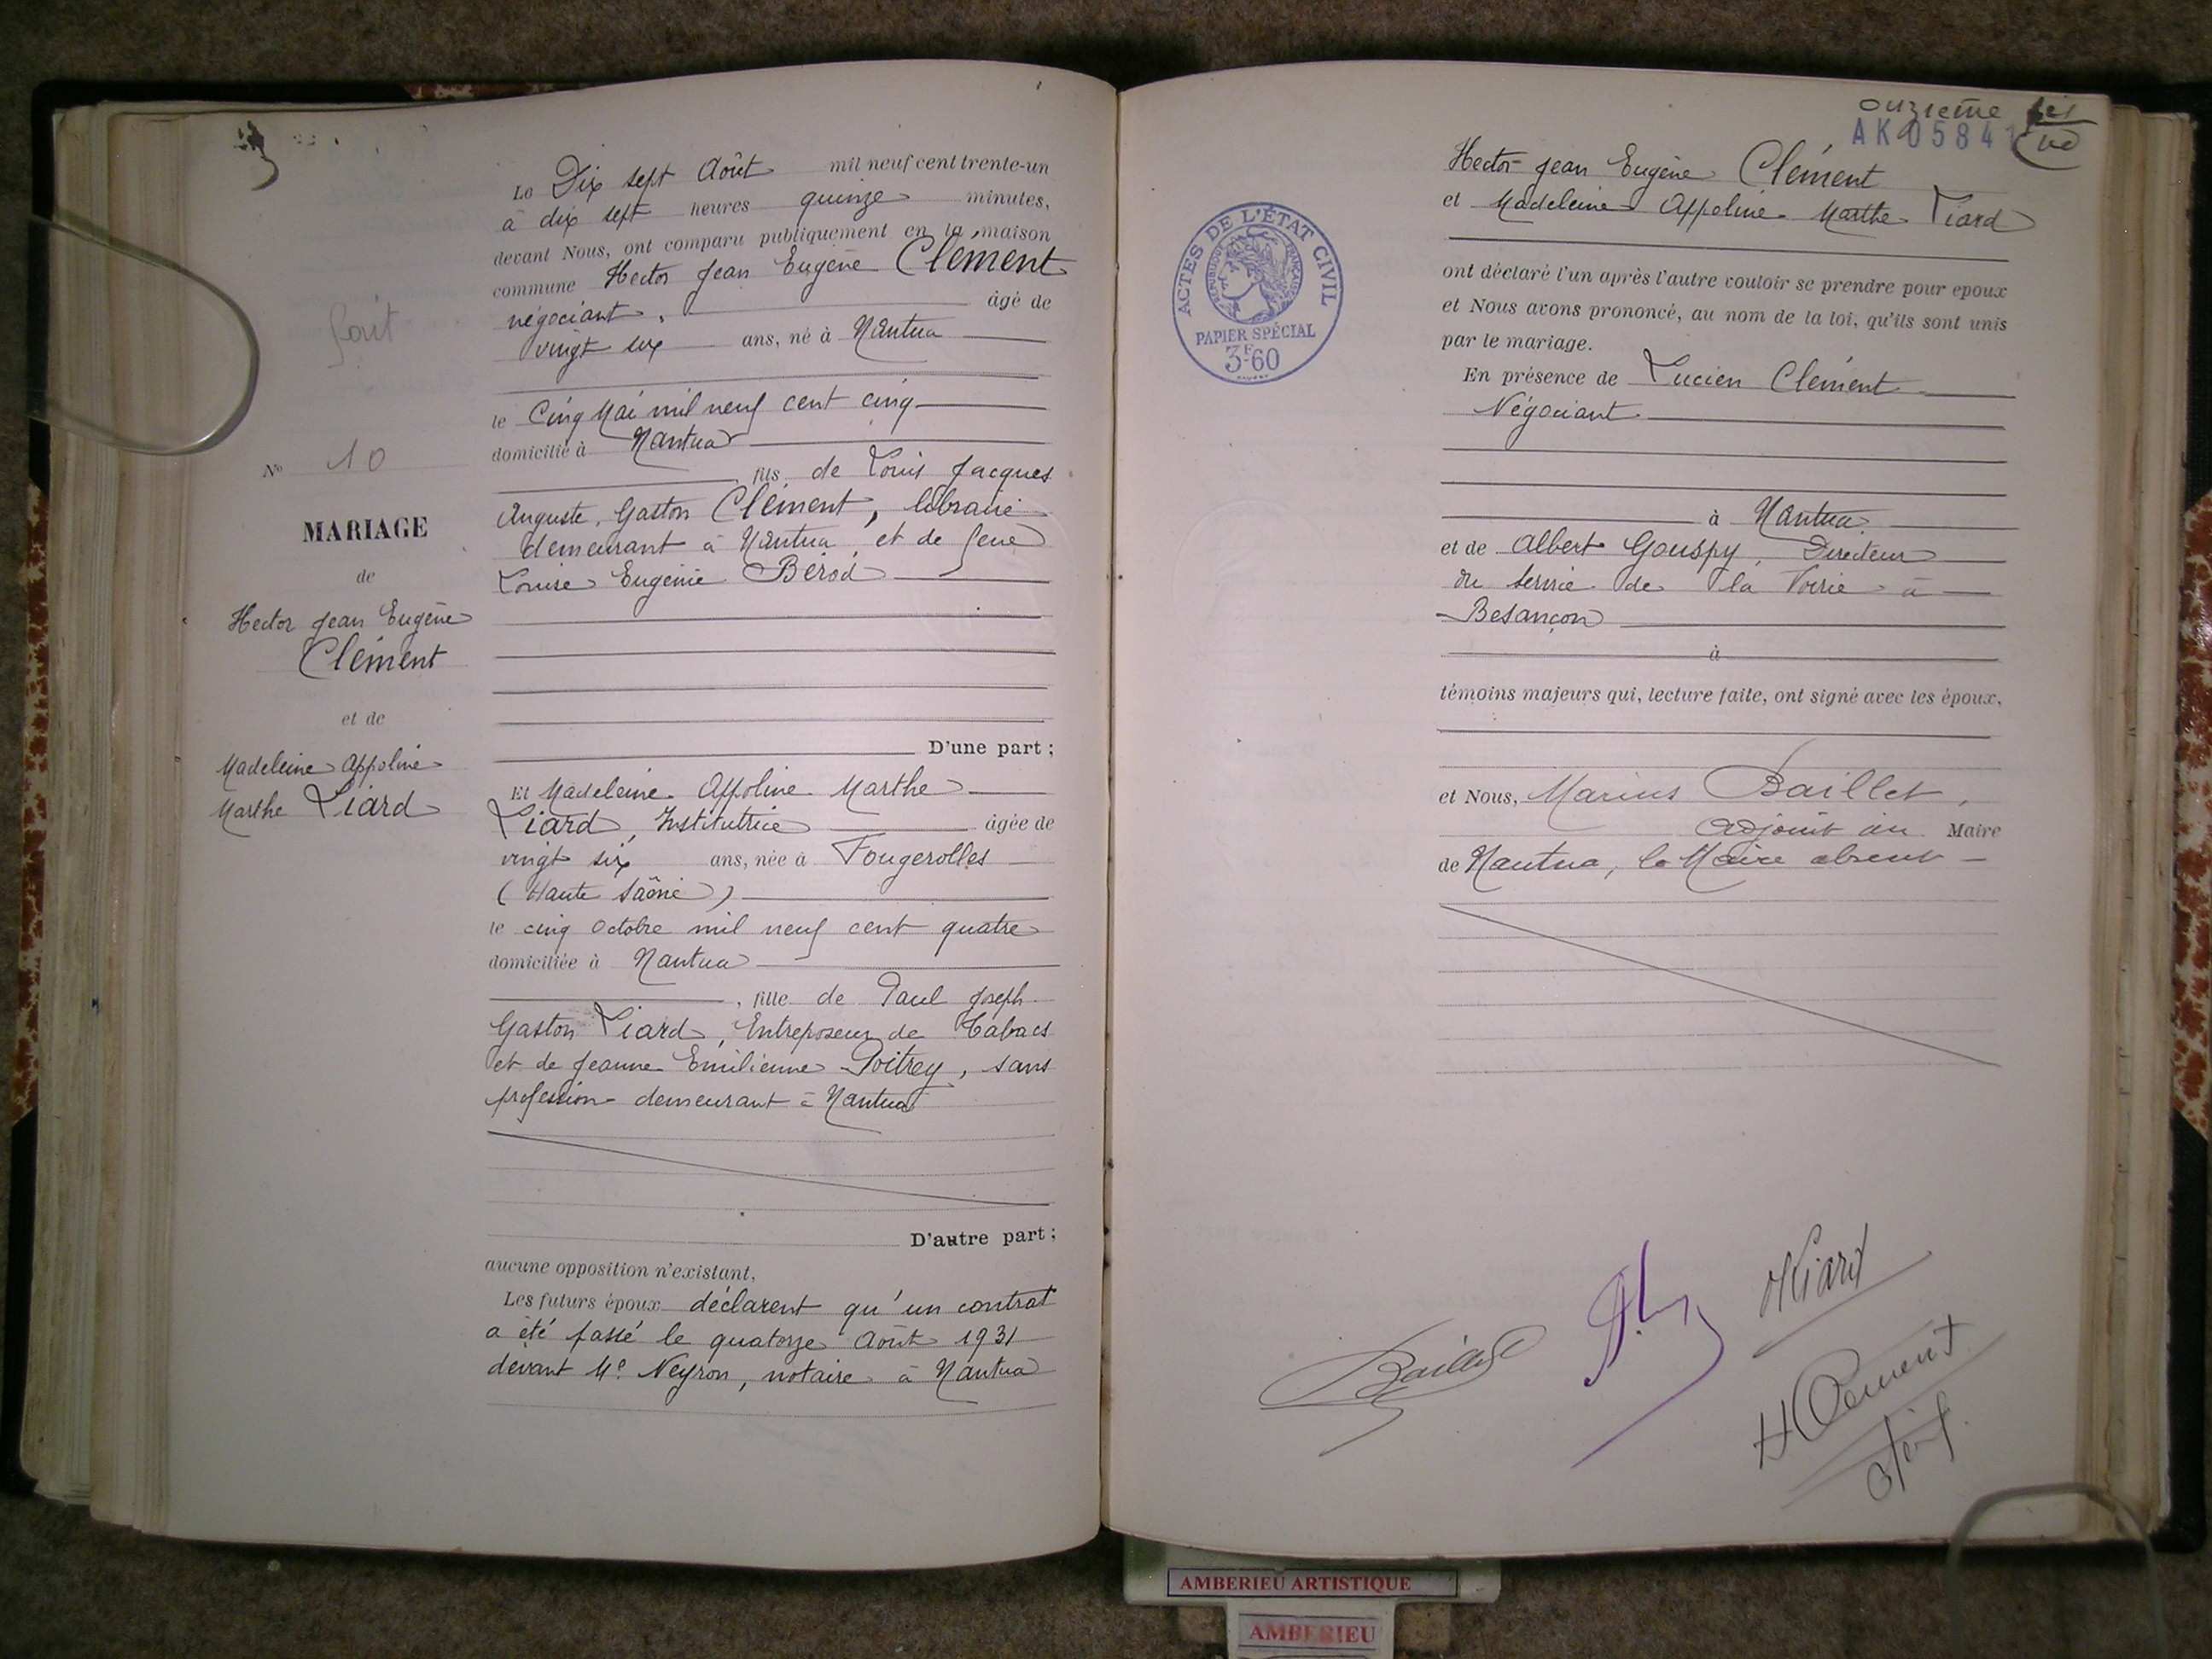 fait
N° 10
MARIAGE
de
Hector Jean Eugène
Clément
et de
Madeleine Appoline
Marthe Liard
Le Dix sept Août mil neuf cent trente-un
à dix sept heures quinze minutes,
devant Nous, ont comparu publiquement en la maison
commune Hector Jean Eugène Clément
négociant, âgé de
vingt six ans, né à Nantua
le Cinq Mai mil neuf cent cinq
domicilié à Nantua
, fils de Louis Jacques
Auguste, Gaston Clément, libraire
demeurant à Nantua, et de feue
Louise Eugénie Bérod
D'une part ;
Et Madeleine Appoline Marthe
Liard, Institutrice âgée de
vingt six ans, née à Fougerolles
(Haute Saône)
le cinq Octobre mil neuf cent quatre
domiciliée à Nantua
, fille de Paul Joseph
Gaston Liard, Entreposeur de Tabacs
et de Jeanne Emilienne Poitrey, sans
profession demeurant à Nantua
D'autre part ;
aucune opposition n'existant,
Les futurs époux déclarent qu'un contrat
a été passé le quatorze Août 1931
devant Me Neyron, notaire à Nantua
onzième
AK 05841
ACTES DE L'ÉTAT CIVIL
RÉPUBLIQUE FRANÇAISE
PAPIER SPÉCIAL
3F60
Hector Jean Eugène Clément
et Madeleine Appoline Marthe Liard
ont déclaré l'un après l'autre vouloir se prendre pour époux
et Nous avons prononcé, au nom de la loi, qu'ils sont unis
par le mariage.
En présence de Lucien Clément
Négociant
à Nantua
et de Albert Gouspy, Directeur
du Service de la Voirie à
Besançon
à
témoins majeurs qui, lecture faite, ont signé avec les époux,
et Nous, Marius Baillet,
adjoint au Maire
de Nantua, le Maire absent
Baillet
MLiard
HClement
AMBERIEU ARTISTIQUE
AMBERIEU